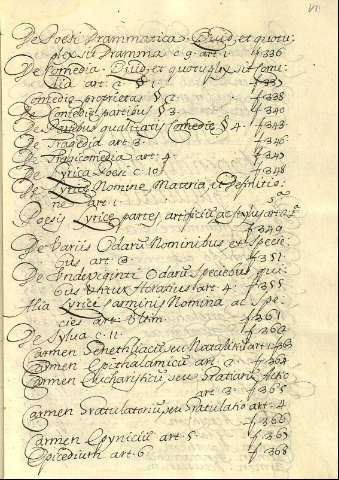 VII
De Poesi Drammatica. Quid, et quotu-
plex sit Dramma c. 9. art. 1. f. 336
De Comedia. Quid, et quotuplex sit Come-
dia art. 2. § 1. f. 337
Comediæ proprietas § 2. f. 338
De Comediæ partibus § 3. f. 340
De Partibus qualitatis Comediæ § 4. f. 343
De Tragedia art. 3. f. 346
De Tragicomedia art. 4. f. 347
De Lyrica Poesi c. 10 f. 348
De Lyricæ Nomine, Materia, et Definitio-
ne art. 1.
Poesis Lyricæ partes artificiũ ac stylus art. 2.
f. 349
De Variis Odarũ Nominibus et Specie-
bus art. 3. f. 351
De Odarũ Speciebus qui-
bus art. 4. f. 355
Alia Lyrici Carminis Nomina ac Spe-
cies art. f. 361
De Sylva c. 11. f. 363
Carmen Genethliacũ seu Natalitiũ art. 1. 363
Carmen Epithalamicũ art. 2. f. 364
Carmen Eucharisticũ seu Gratiarũ Actio
art. 3. f. 365
Carmen Gratulatoriũ seu Gratulatio art. 4.
f. 366
Carmen Epyniciũ art. 5. f. 367
Epicedium art. 6. f. 368